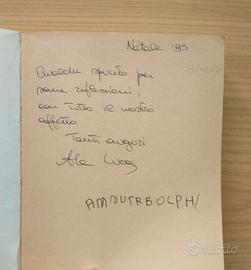 Natale '95
Qualche spunto per
sane riflessioni,
con tutto il nostro
affetto
Tanti auguri
Ale Luca
subito